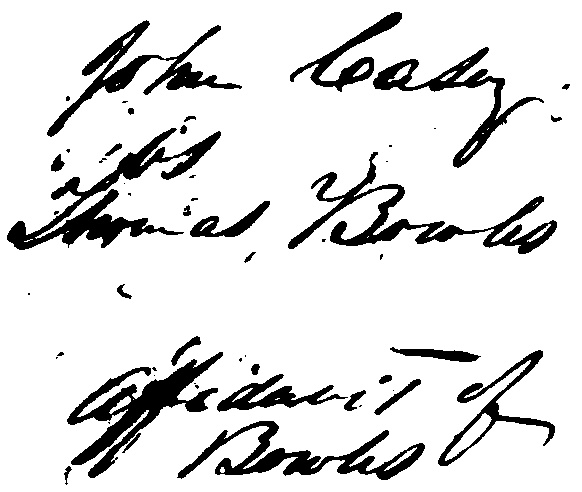 John Casey
vs
Thomas Bowls
Affidavit of
Bowls